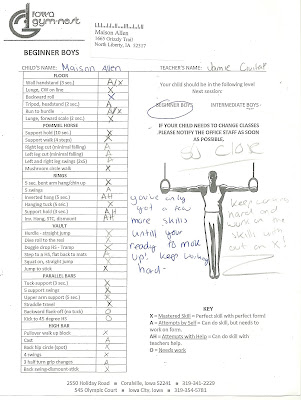 Iowa
gym-nest
Maison Allen
North Liberty, IA 52317
BEGINNER BOYS
CHILD'S NAME: Maison Allen
TEACHER'S NAME: Jamie
FLOOR
Wall handstand (5 sec.) A/X
Lunge, CW on line X
Backward roll X
Tripod, headstand (2 sec.) A
Run to hurdle A/X
Lunge, forward scale (2 sec.) X
POMMEL HORSE
Support hold (10 sec.) X
Support walk (4 steps) X
Right leg cut (minimal falling) A
Left leg cut (minimal falling) A
Left and right leg swings (3x5) A
Mushroom circle walk X
RINGS
5 sec. bent arm hang/chin up X
5 swings A
Inverted hang (5 sec.) AH
Hanging tuck (5 sec.) X
Support hold (3 sec.) AH
Inv. Hang, STC, dismount AH
VAULT
Hurdle - straight jump X
Dive roll to the reel X
Goggle drop HS - Tramp X
Step to a HS, flat back to mats A
Squat on, straight jump X
Jump to stick X
PARALLEL BARS
Tuck support (3 sec.) X
5 support swings X
Upper arm support (5 sec.) X
Straddle travel X
Backward flank-off (no tuck) O
Kick to 45 degree HS O
HIGH BAR
Pullover walk up block X
Cast A
Back hip circle (spot) X
4 swings X
3 half turn grip changes A
Back swing dismount-stick X
Your child should be in the following level
Next session:
BEGINNER BOYS INTERMEDIATE BOYS
IF YOUR CHILD NEEDS TO CHANGE CLASSES
PLEASE NOTIFY THE OFFICE STAFF AS SOON
AS POSSIBLE.
SO CLOSE
you've only
got a few
more skills
until your
ready to move
up! keep working
hard-
keep working
hard and
work on the
skills with
out an X!
KEY
X = Mastered Skill = Perfect skill with perfect form!
A = Attempts by Self = Can do skill, but needs to
work on form.
AH = Attempts with Help = Can do skill with
teachers help.
O = Needs work
2550 Holiday Road • Coralville, Iowa 52241 • 319-341-2229
545 Olympic Court • Iowa City, Iowa • 319-354-5781